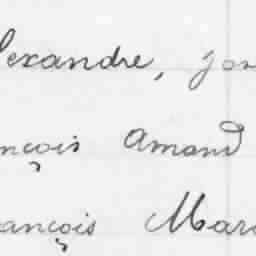 lexandre, jon
nçois Amand
ançois Mar